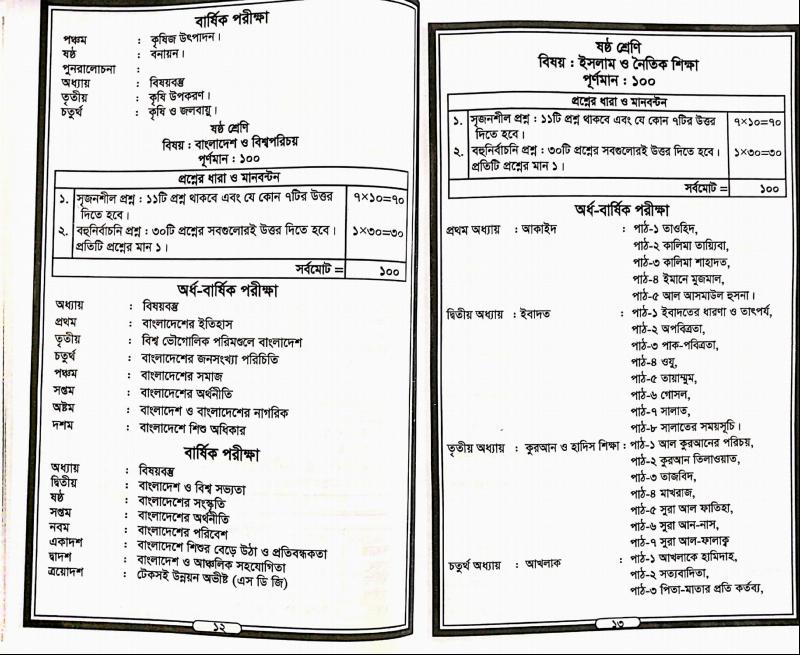 বার্ষিক পরীক্ষা
পঞ্চম : কৃষিজ উৎপাদন।
ষষ্ঠ : বনায়ন।
পুনরালোচনা :
অধ্যায় : বিষয়বস্তু
তৃতীয় : কৃষি উপকরণ।
চতুর্থ : কৃষি ও জলবায়ু।
ষষ্ঠ শ্রেণি
বিষয় : বাংলাদেশ ও বিশ্বপরিচয়
পূর্ণমান : ১০০
প্রশ্নের ধারা ও মানবন্টন
১. সৃজনশীল প্রশ্ন : ১১টি প্রশ্ন থাকবে এবং যে কোন ৭টির উত্তর ৭×১০=৭০
দিতে হবে।
২. বহুনির্বাচনি প্রশ্ন : ৩০টি প্রশ্নের সবগুলোরই উত্তর দিতে হবে। ১×৩০=৩০
প্রতিটি প্রশ্নের মান ১।
সর্বমোট = ১০০
অর্ধ-বার্ষিক পরীক্ষা
অধ্যায় : বিষয়বস্তু
প্রথম : বাংলাদেশের ইতিহাস
তৃতীয় : বিশ্ব ভৌগোলিক পরিমণ্ডলে বাংলাদেশ
চতুর্থ : বাংলাদেশের জনসংখ্যা পরিচিতি
পঞ্চম : বাংলাদেশের সমাজ
সপ্তম : বাংলাদেশের অর্থনীতি
অষ্টম : বাংলাদেশ ও বাংলাদেশের নাগরিক
দশম : বাংলাদেশে শিশু অধিকার
বার্ষিক পরীক্ষা
অধ্যায় : বিষয়বস্তু
দ্বিতীয় : বাংলাদেশ ও বিশ্ব সভ্যতা
ষষ্ঠ : বাংলাদেশের সংস্কৃতি
সপ্তম : বাংলাদেশের অর্থনীতি
নবম : বাংলাদেশের পরিবেশ
একাদশ : বাংলাদেশে শিশুর বেড়ে উঠা ও প্রতিবন্ধকতা
দ্বাদশ : বাংলাদেশ ও আঞ্চলিক সহযোগিতা
ত্রয়োদশ : টেকসই উন্নয়ন অভীষ্ট (এস ডি জি)
১২
ষষ্ঠ শ্রেণি
বিষয় : ইসলাম ও নৈতিক শিক্ষা
পূর্ণমান : ১০০
প্রশ্নের ধারা ও মানবন্টন
১. সৃজনশীল প্রশ্ন : ১১টি প্রশ্ন থাকবে এবং যে কোন ৭টির উত্তর ৭×১০=৭০
দিতে হবে।
২. বহুনির্বাচনি প্রশ্ন : ৩০টি প্রশ্নের সবগুলোরই উত্তর দিতে হবে। ১×৩০=৩০
প্রতিটি প্রশ্নের মান ১।
সর্বমোট = ১০০
অর্ধ-বার্ষিক পরীক্ষা
প্রথম অধ্যায় : আকাইদ : পাঠ-১ তাওহিদ,
পাঠ-২ কালিমা তায়্যিবা,
পাঠ-৩ কালিমা শাহাদত,
পাঠ-৪ ইমানে মুজমাল,
পাঠ-৫ আল আসমাউল হুসনা।
দ্বিতীয় অধ্যায় : ইবাদত : পাঠ-১ ইবাদতের ধারণা ও তাৎপর্য,
পাঠ-২ অপবিত্রতা,
পাঠ-৩ পাক-পবিত্রতা,
পাঠ-৪ ওযু,
পাঠ-৫ তায়াম্মুম,
পাঠ-৬ গোসল,
পাঠ-৭ সালাত,
পাঠ-৮ সালাতের সময়সূচি।
তৃতীয় অধ্যায় : কুরআন ও হাদিস শিক্ষা : পাঠ-১ আল কুরআনের পরিচয়,
পাঠ-২ কুরআন তিলাওয়াত,
পাঠ-৩ তাজবিদ,
পাঠ-৪ মাখরাজ,
পাঠ-৫ সুরা আল ফাতিহা,
পাঠ-৬ সুরা আন-নাস,
পাঠ-৭ সুরা আল-ফালাক্ব
চতুর্থ অধ্যায় : আখলাক : পাঠ-১ আখলাকে হামিদাহ,
পাঠ-২ সত্যবাদিতা,
পাঠ-৩ পিতা-মাতার প্রতি কর্তব্য,
১৩